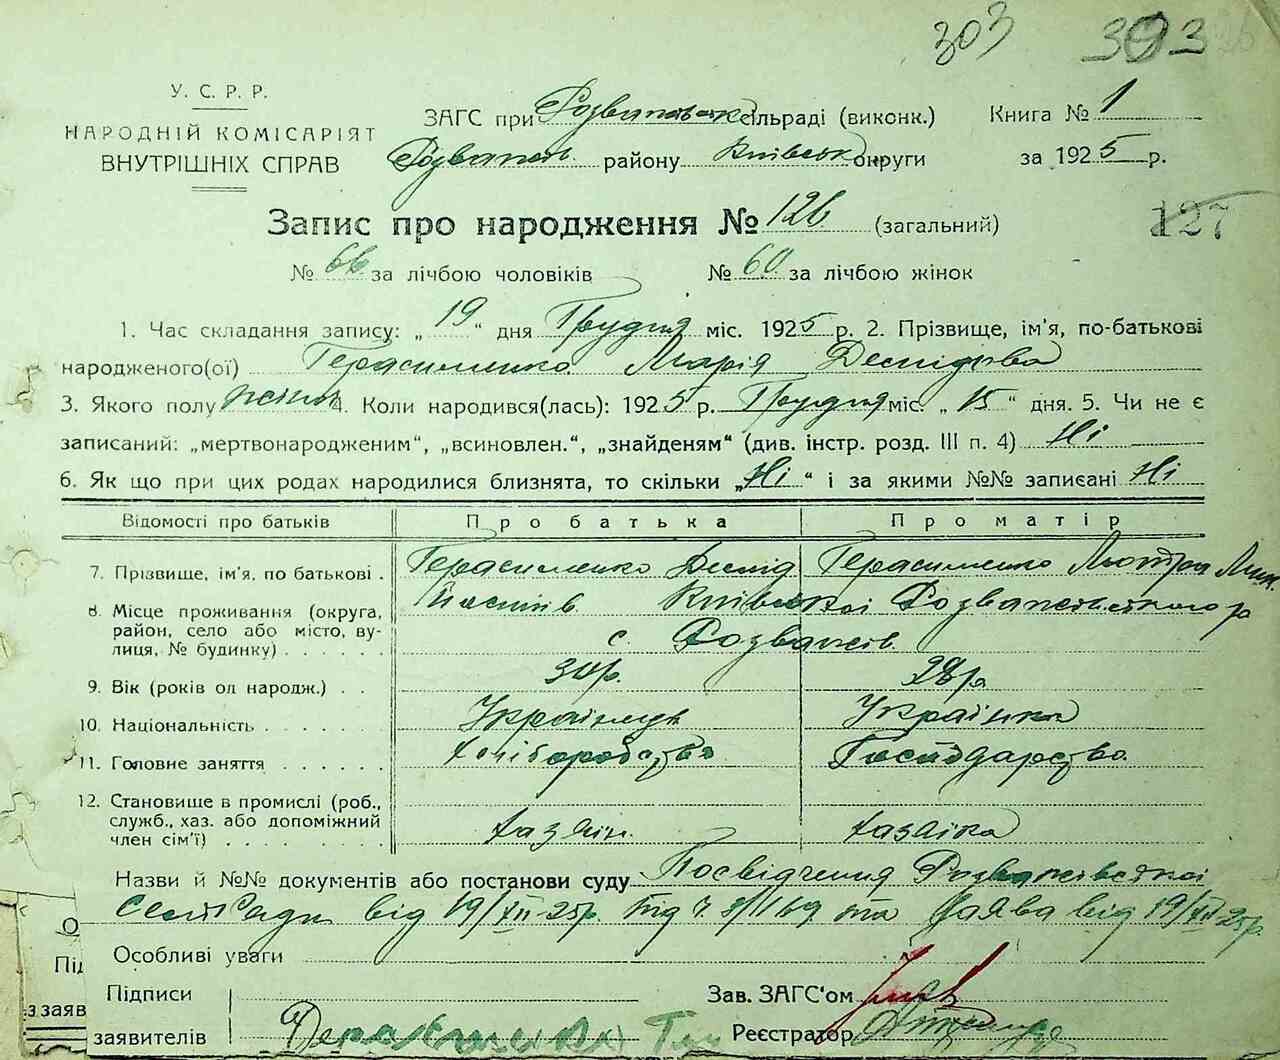 303 393
У. С. Р. Р.
НАРОДНІЙ КОМІСАРІЯТ
ВНУТРІШНІХ СПРАВ
ЗАГС при Розважевск сільраді (виконк.) Книга № 1
Розважев. району Київськ округи за 1925 р.
Запис про народження № 126 (загальний) 127
№ 66 за лічбою чоловіків № 60 за лічбою жінок
1. Час складання запису: „ 19 “ дня Грудня міс. 1925 р. 2. Прізвище, ім'я, по-батькові
народженого(ої) Герасименко Марія Деомидівна
3. Якого полу жіноч 4. Коли народився(лась): 1925 р. Грудня міс. „ 15 “ дня. 5. Чи не є
записаний: „мертвонародженим“, „всиновлен.“, „знайденям“ (див. інстр. розд. III п. 4) Ні
6. Як що при цих родах народилися близнята, то скільки „ Ні “ і за якими №№ записані Ні
Відомості про батьків Про батька Про матір
7. Прізвище, ім'я, по батькові . Герасименко Герасименко
8. Місце проживання (округа, Київської Розважевського р
район, село або місто, ву-
лиця, № будинку) . . . . . . с. Розважев.
9. Вік (років од народж.) . . 30р. 28р.
10. Національність . . . . . . Українець Українка
11. Головне заняття . . . . . . хліборобство Господарство.
12. Становище в промислі (роб.,
служб., хаз. або допоміжний
член сім'ї) . . . . . . . . хазяїн. хазяйка
Назви й №№ документів або постанови суду Посвідчення Розважевської
Сельради від 19/XII-25р. під ч. та Заява від 19/XII-25р.
Особливі уваги
Підписи Зав. ЗАГС'ом
заявителів Реєстратор
О
Під
з заяв